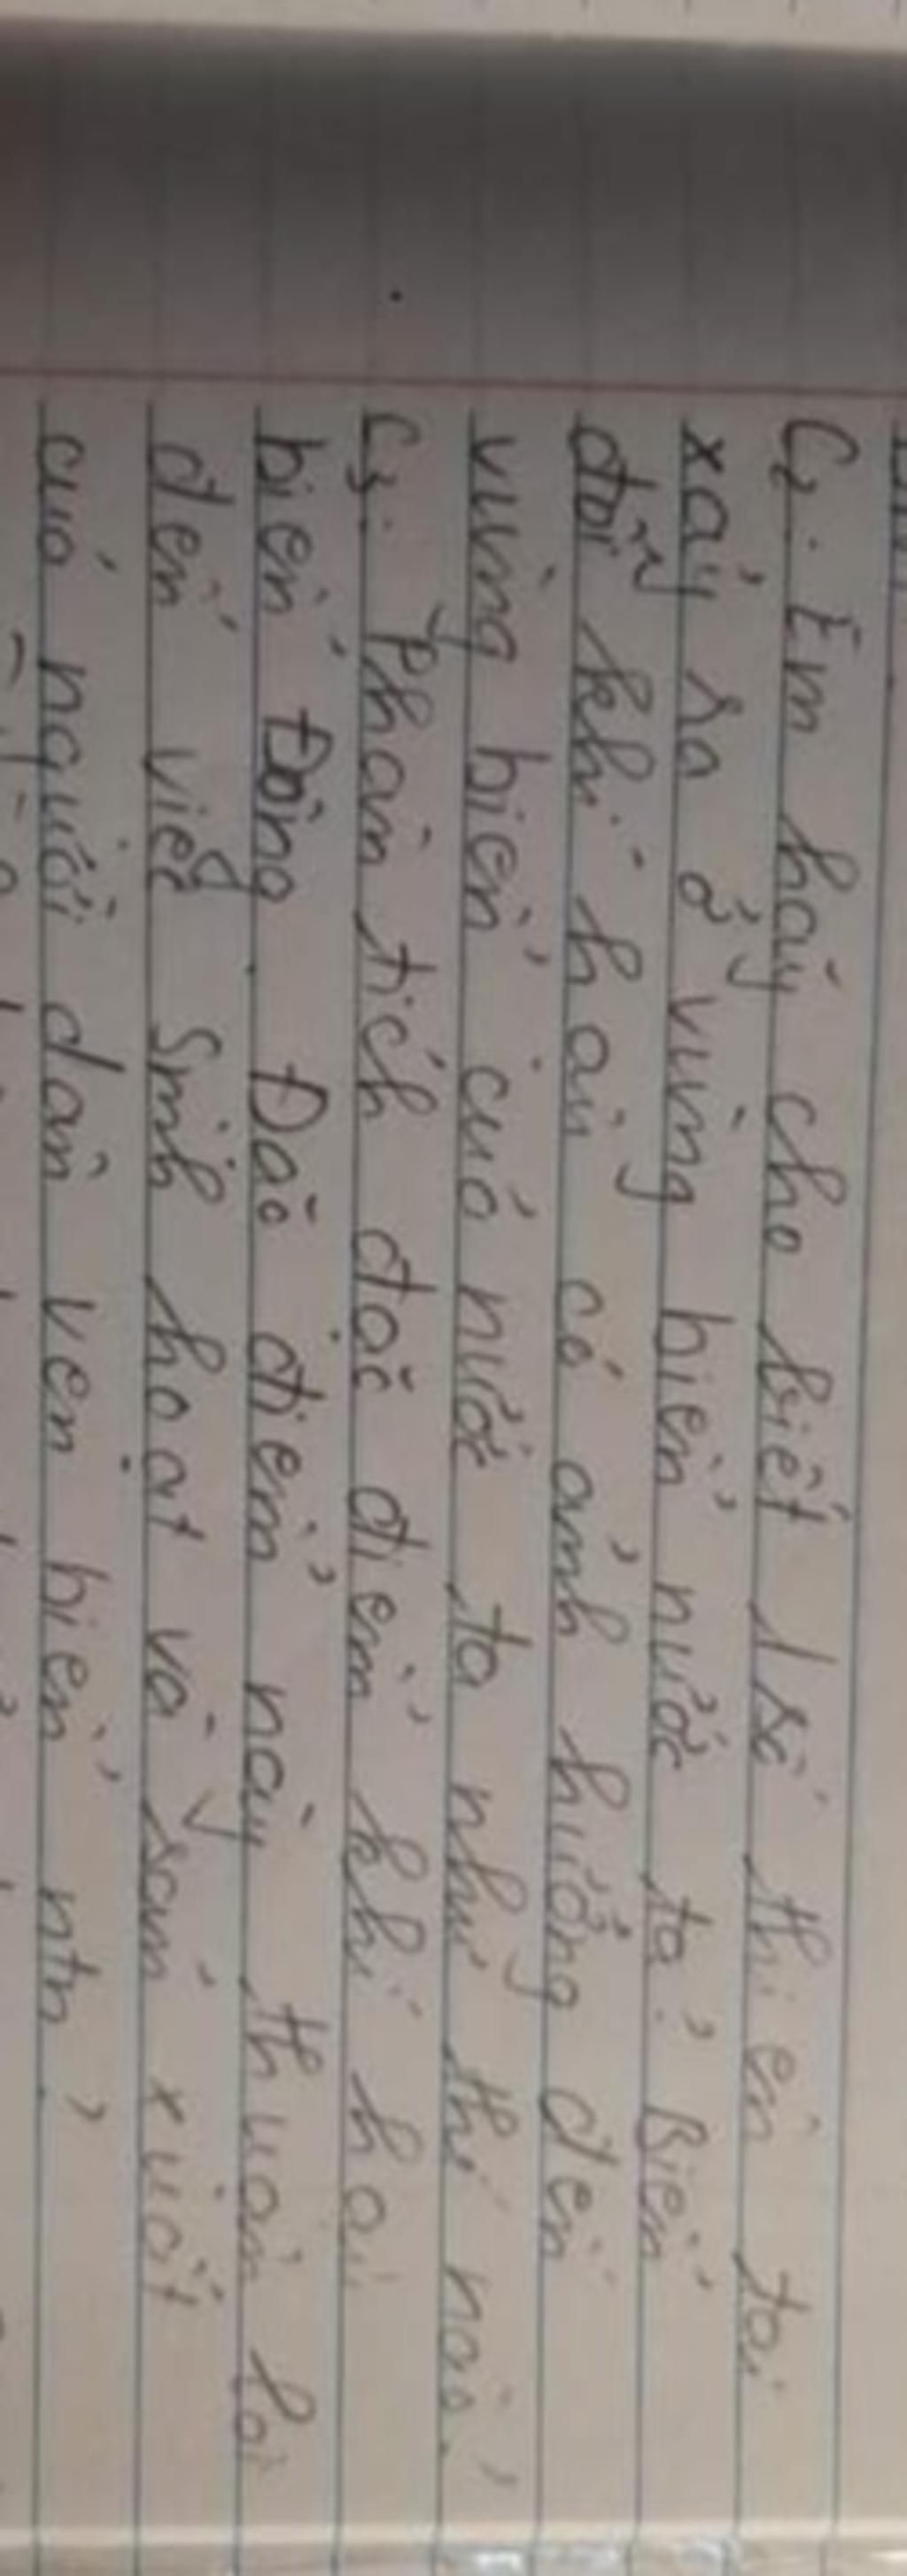 C2. Em hãy cho biết 1 số thiên tai
xảy ra ở vùng biển nước ta? Biến
đổi khí hậu có ảnh hưởng đến
vùng biển của nước ta như thế nào?
C3. Phân tích đặc điểm khí hậu
biển Đông. Đặc điểm này thuận lợi
đến việc sinh hoạt và sản xuất
của người dân ven biển ntn?